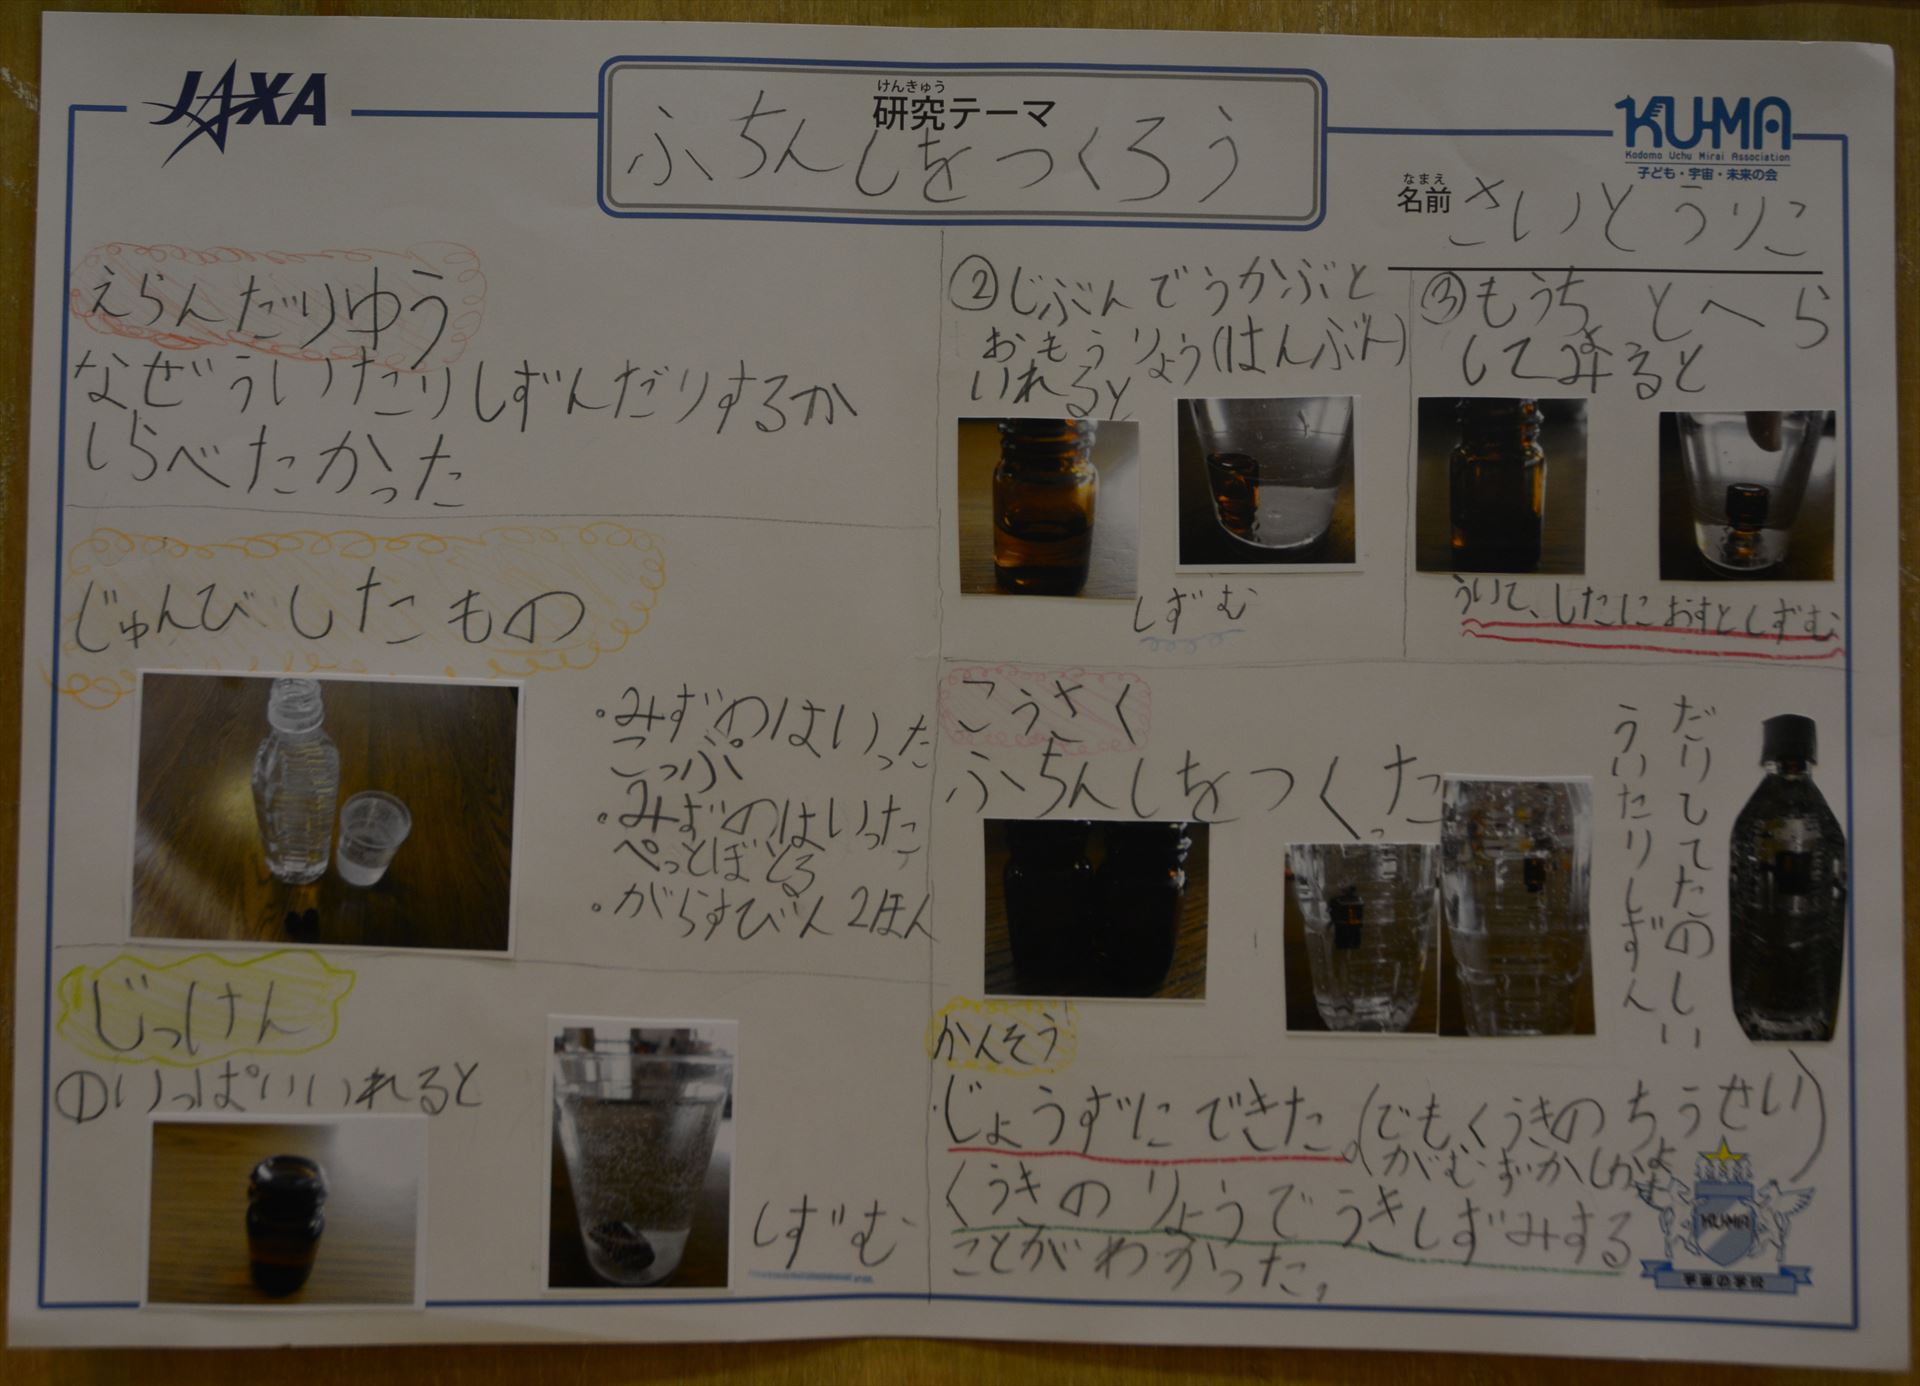 JAXA
けんきゅう
研究テーマ
ふちんしをつくろう
KU-MA
Kodomo Uchu Mirai Association
子ども・宇宙・未来の会
なまえ
名前 さいとうりこ
えらんだりゆう
なぜういたりしずんだりするか
しらべたかった
じゅんびしたもの
・みずのはいった
こっぷ
・みずのはいった
ぺっとぼとる
・がらすびん2ほん
じっけん
①いっぱいいれると
しずむ
②じぶんでうかぶと
おもうりょう(はんぶん)
いれると
しずむ
③もうちょとへら
してみると
ういて、したにおすとしずむ
こうさく
ふちんしをつくった
ういたりしずん
だりしてたのしい
かんそう
じょうずにできた。(でもくうきのちうせい
がむずかしかよ
くうきのりょうでうきしずみする
ことがわかった。
KU-MA